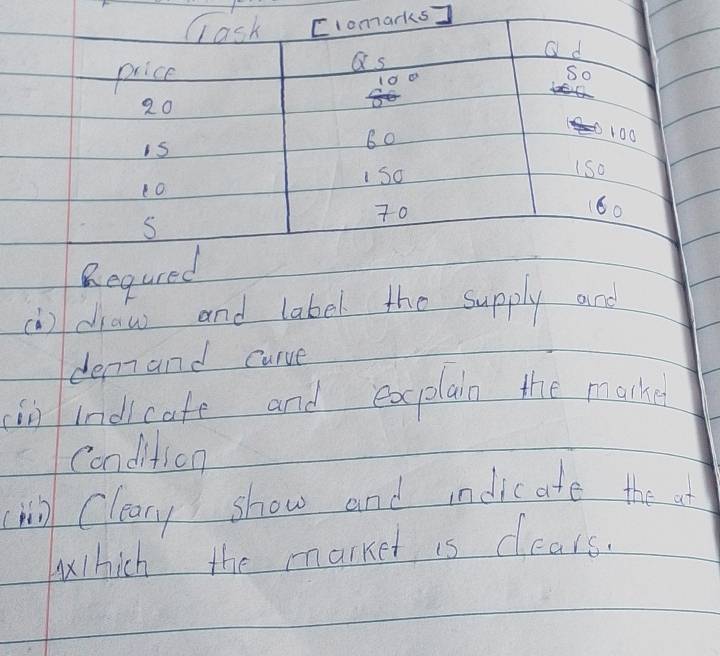 Task [10marks]
price Qs Qd
20 100 50
15 60 100
10 150 150
5 70 160
Requred
(i) draw and label the supply and
demand curve
(ii) Indicate and explain the market
Condition
(iii) Cleary show and indicate the at
which the market is clears.